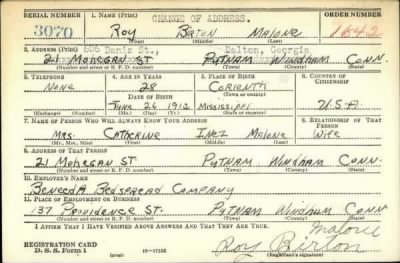 SERIAL NUMBER 1. NAME (Print) CHANGE OF ADDRESS. ORDER NUMBER
3070 ROY BIRTON MALONE 1642
(First) (Middle) (Last)
2. ADDRESS (Print) 606 Danis St., Dalton, Georgia
21 MOHEGAN ST PUTNAM WINDHAM CONN.
(Number and street or R. F. D. number) (Town) (County) (State)
3. TELEPHONE 4. AGE IN YEARS 5. PLACE OF BIRTH 6. COUNTRY OF CITIZENSHIP
NONE 28 CORIENTH
DATE OF BIRTH (Town or county)
JUNE 26 1912 MISSISSIPPI U.S.A.
(Mo.) (Day) (Yr.) (State or country)
7. NAME OF PERSON WHO WILL ALWAYS KNOW YOUR ADDRESS 8. RELATIONSHIP OF THAT PERSON
MRS. CATHERINE INEZ MALONE WIFE
(Mr., Mrs., Miss) (First) (Middle) (Last)
9. ADDRESS OF THAT PERSON
21 MOHEGAN ST. PUTNAM WINDHAM CONN.
(Number and street or R. F. D. number) (Town) (County) (State)
10. EMPLOYER'S NAME
BEDSPREAD COMPANY
11. PLACE OF EMPLOYMENT OR BUSINESS
137 PROVIDENCE ST. PUTNAM WINDHAM CONN
(Number and street or R. F. D. number) (Town) (County) (State)
I AFFIRM THAT I HAVE VERIFIED ABOVE ANSWERS AND THAT THEY ARE TRUE.
Malone
REGISTRATION CARD Roy Birton
D. S. S. Form 1 (Registrant's signature)